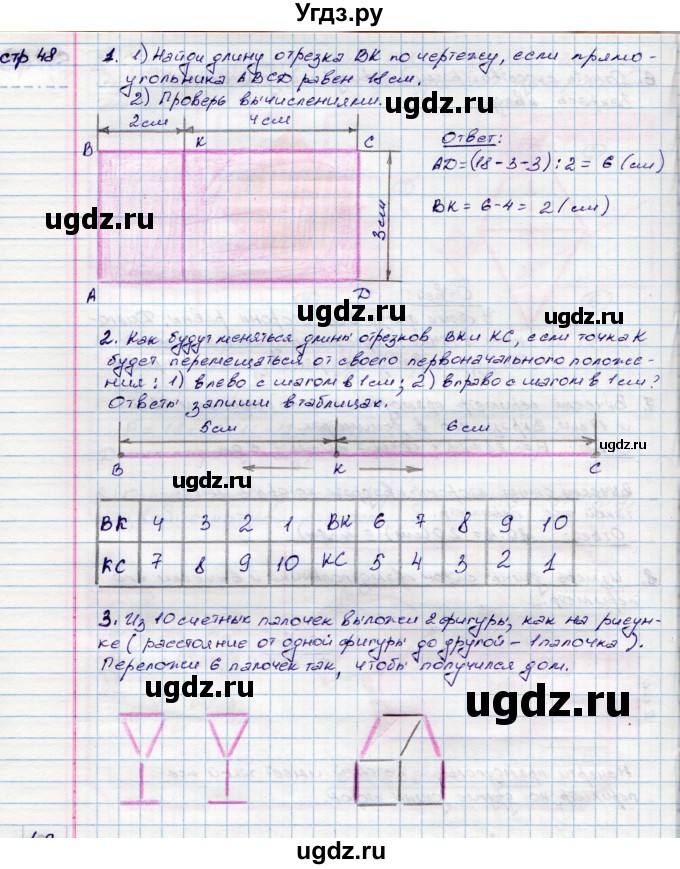 Угдз.ру
стр 48
1. 1) Найди длину отрезка ВК по чертежу, если прямо-
угольника АВСD равен 18см.
2) Проверь вычислениями.
2см 4см
В К С
Ответ:
AD=(18-3-3):2= 6 (см)
3см
ВК= 6-4= 2(см)
ugdz.ru
ugdz.ru
А D
ugdz.ru
2. Как будут меняться длины отрезков ВК и КС, если точка К
будет перемещаться от своего первоначального положе-
ния: 1) влево с шагом в 1см; 2) вправо с шагом в 1см?
Ответы запиши в таблицах.
ugdz.ru
5см 6см
В К С
ugdz.ru
ВК 4 3 2 1 ВК 6 7 8 9 10
КС 7 8 9 10 КС 5 4 3 2 1
ugdz.ru
3. Из 10 счетных палочек выложи 2 фигуры, как на рисун-
ке (расстояние от одной фигуры до другой - 1палочка).
Переложи 6 палочек так, чтобы получился дом.
ugdz.ru
ugdz.ru
ugdz.ru
ugdz.ru